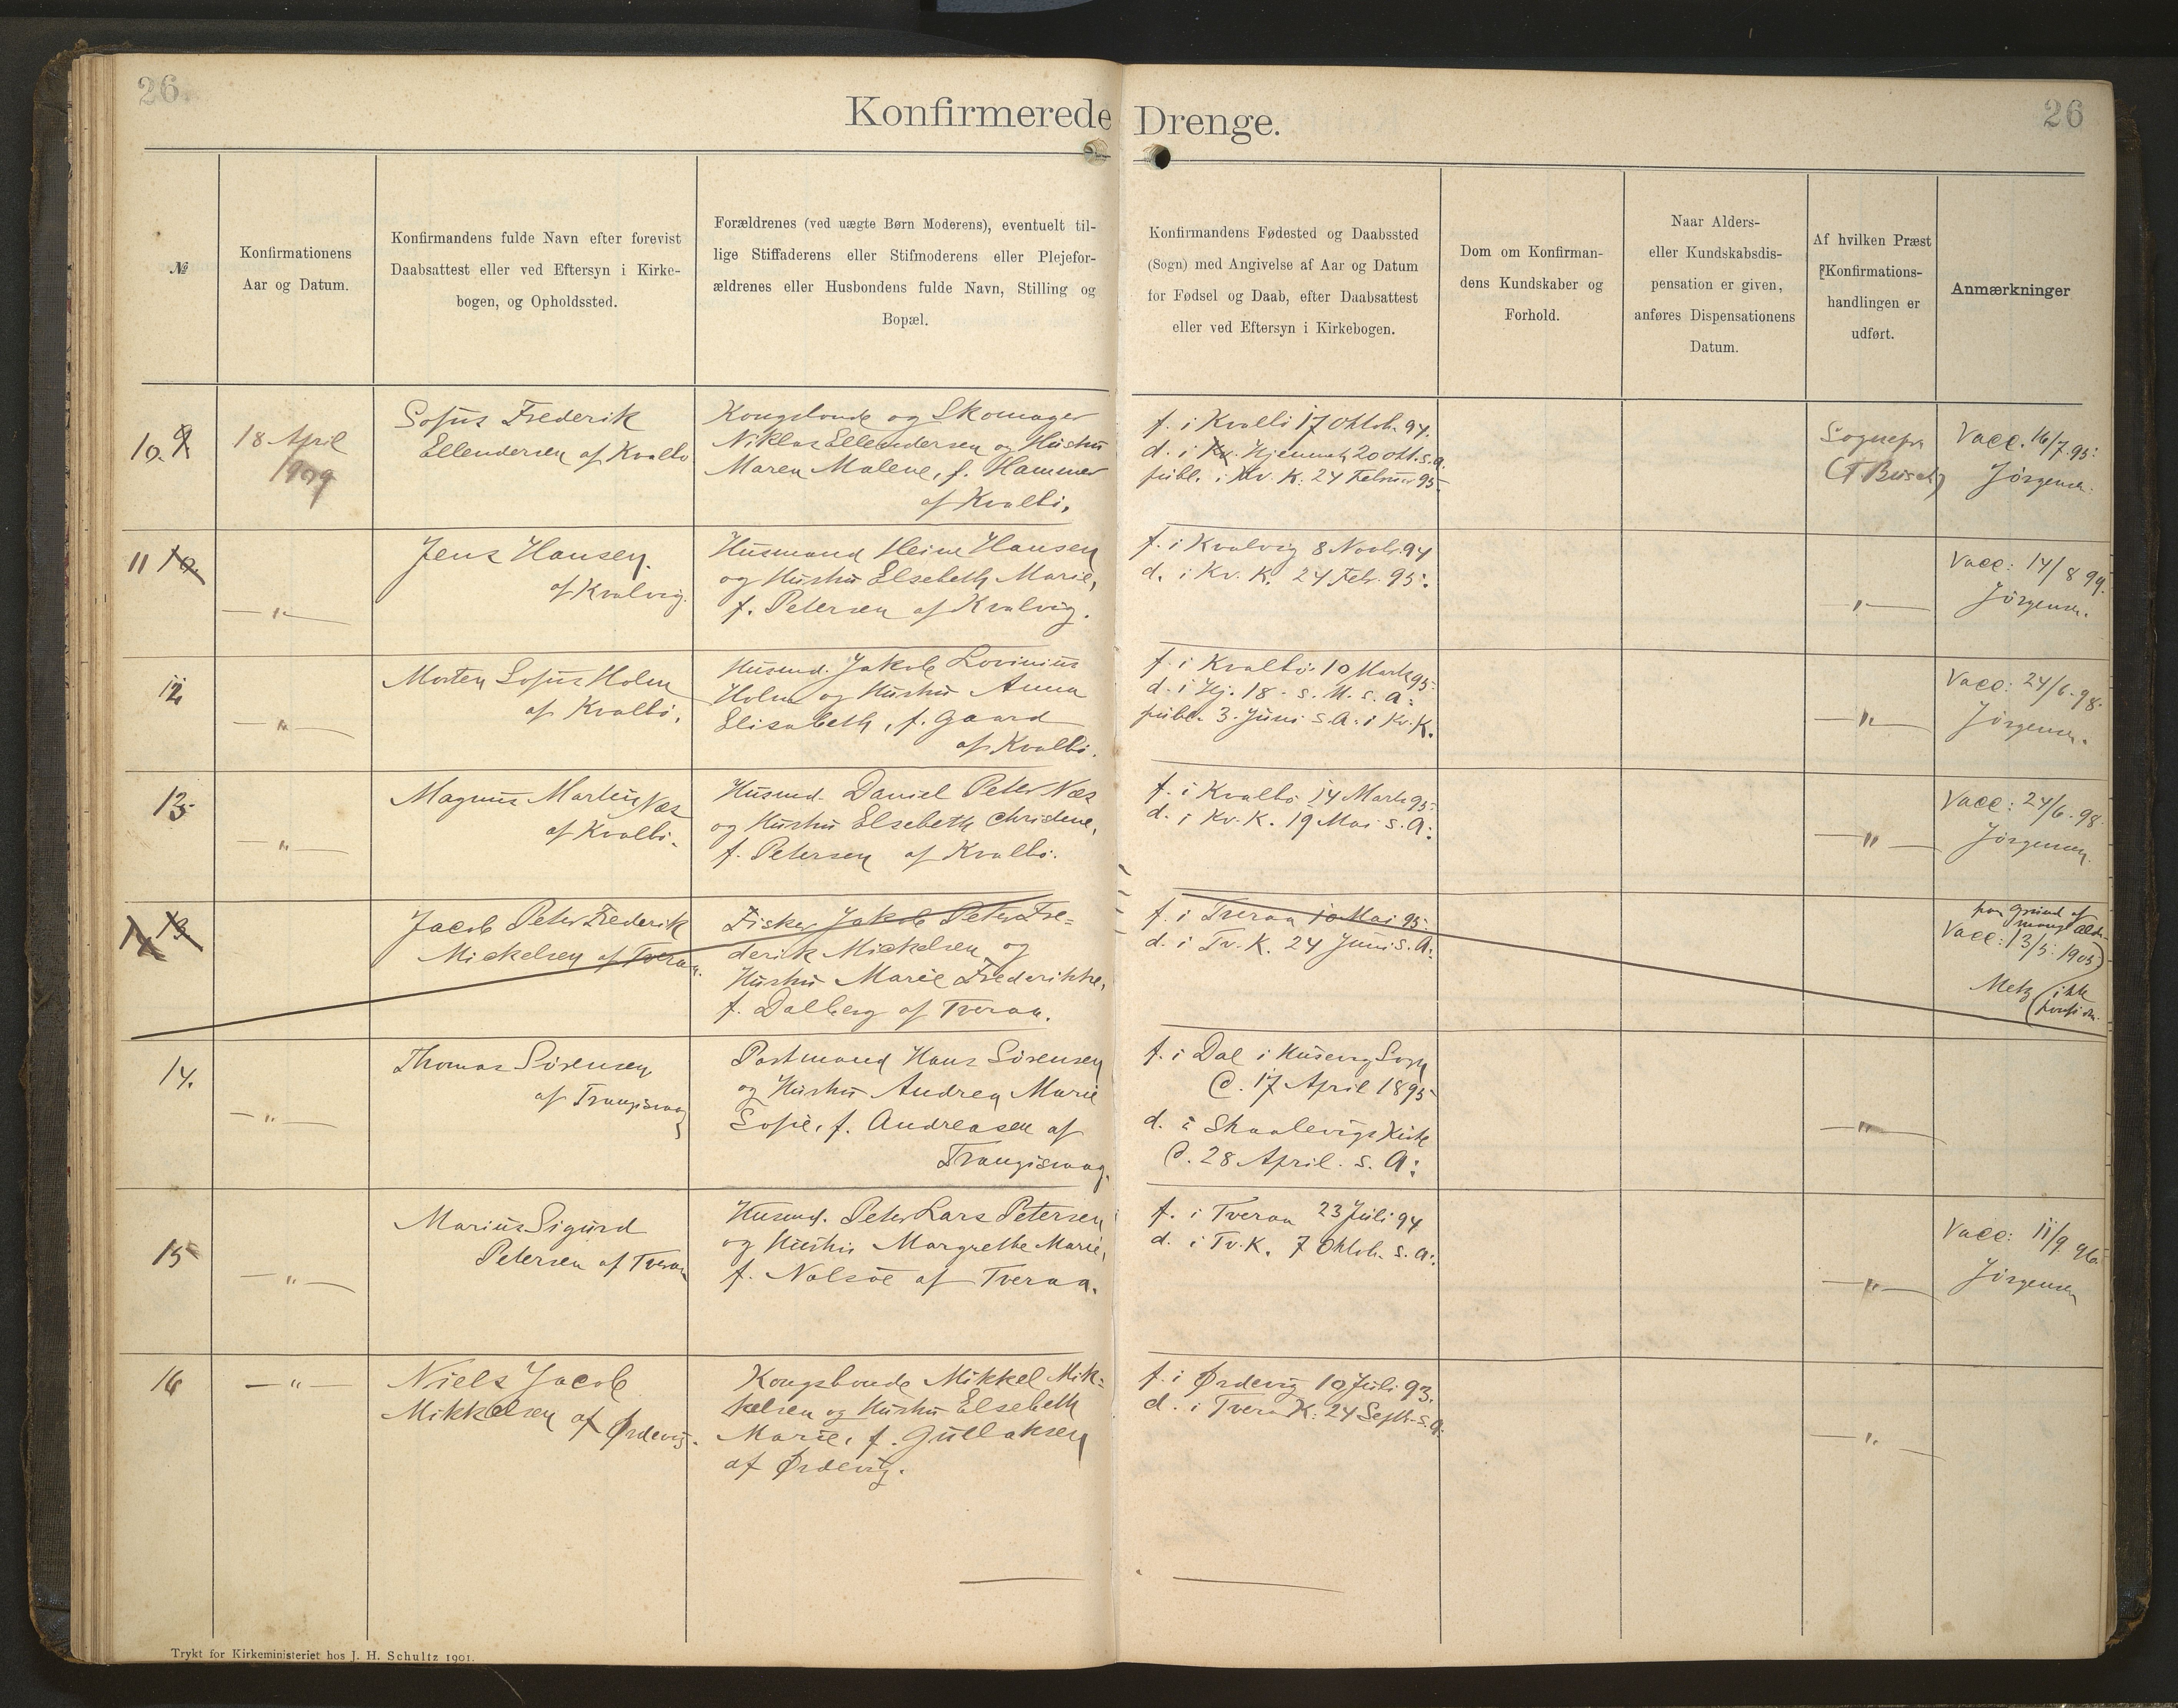 26.
26
Konfirmerede Drenge.
№
Konfirmationens
Aar og Datum.
Konfirmandens fulde Navn efter forevist
Daabsattest eller ved Eftersyn i Kirke-
bogen, og Opholdssted.
Forældrenes (ved uægte Børn Moderens), eventuelt til-
lige Stiffaderens eller Stifmoderens eller Plejefor-
ældrenes eller Husbondens fulde Navn, Stilling og
Bopæl.
Konfirmandens Fødested og Daabssted
(Sogn) med Angivelse af Aar og Datum
for Fødsel og Daab, efter Daabsattest
eller ved Eftersyn i Kirkebogen.
Dom om Konfirman-
dens Kundskaber og
Forhold.
Naar Alders-
eller Kundskabsdis-
pensation er given,
anføres Dispensationens
Datum.
Af hvilken Præst
Konfirmations-
handlingen er
udført.
Anmærkninger
10. 9
18 April
1909
Sofus Frederik
Ellendersen af Kvalbø
Kongsbonde og Skomager
Niklas Ellendersen og Hustru
Maren Malene, f. Hammer
af Kvalbø.
f. i Kvalbø 17 Oktob. 94.
d. i Kv. Hjemmet, 20 Okt. s. a.
publ. i Kv. K. 24 Februar 95.
Sognepr
(T Busch)
Vacc. 16/7. 95.
Jørgensen.
11 10.
—"—
Jens Hansen.
af Kvalvig.
Husmand Heine Hansen
og Hustru Elsebeth Marie,
f. Petersen af Kvalvig.
f. i Kvalvig 8 Novb. 94
d. i Kv. K. 24 Febr. 95.
—"—
Vacc: 14/8 99.
Jørgensen.
12
—"—
Morten Sofus Holm
af Kvalbø.
Husmd. Jakob Lovinius
Holm og Hustru Anna
Elisabeth, f. Gaard
af Kvalbø.
f. i Kvalbø 10 Marts 95.
d. i Hj. 18. s. M. s. A.
publ. 3. Juni s. A. i Kv. K.
—"—
Vacc: 24/6. 98.
Jørgensen.
13
—"—
Magnus Martin Næs
af Kvalbø.
Husmd. Daniel Peter Næs
og Hustru Elsebeth Christine,
f. Petersen af Kvalbø.
f. i Kvalbø 14 Marts 95.
d. i Kv. K. 19 Mai s. A:
—"—
Vacc: 24/6. 98.
Jørgensen.
14 13
Jacob Peter Frederik
Mickelsen af Tveraa.
Fisker Jakob Peter Fre=
derik Mickelsen og
Hustru Marie Frederikke,
f. Dalberg af Tveraa.
f. i Tveraa 10 Mai 95.
d. i Tv. K. 24 Juni s. A:
paa Grund af
mang. Alder
Vacc: 13/5. 1905
Metz (ikke
konfirm.
14.
—"—
Thomas Sörensen
af Trangisvaag
Postmand Hans Sörensen
og Hustru Andrea Marie
Sofie, f. Andreasen af
Trangisvaag.
f. i Dal i Husevig Sogn
d. 17 April 1895
d. i Skaalevigs Kirke
d. 28 April. s. A:
—"—
15
—"—
Marius Sigurd
Petersen af Tveraa
Husmd. Peter Lars Petersen
og Hustru Margrethe Marie,
f. Nolsøe af Tveraa.
f. i Tveraa 23 Juli 94
d. i Tv. K. 7 Oktob. s. a:
—"—
Vacc: 11/9. 96.
Jørgensen
16
—"—
Niels Jacob
Mikkelsen af Ørdevig.
Kongsbonde Mikkel Mik=
kelsen og Hustru Elsebeth
Marie, f. Gullaksen
af Ørdevig.
f. i Ørdevig 10 Juli 93.
d. i Tveraa K. 24 Septb. s. a.
—"—
Trykt for Kirkeministeriet hos J. H. Schultz 1901.